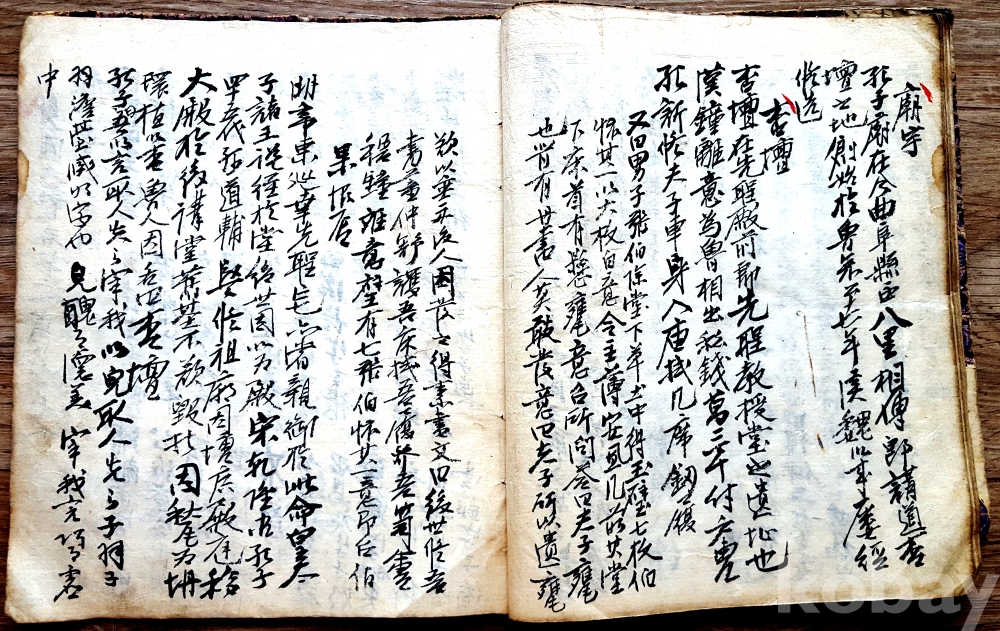 廟宇
孔子廟在今曲阜縣西八里相傳即講道杏
壇之地則始於魯哀公十七年漢魏以來屢經
修造
杏壇
杏壇在先聖殿前即先聖教授堂之遺址也
漢鍾離意為魯相出私錢萬三千付戶曹
孔訢修夫子車身入庙拭几席劍履
又曰男子張伯除堂下草土中得玉璧七枚伯
懷其一以六枚白意令主簿安置几前其堂
下床首有懸甕意召孔訢問答曰夫子甕
也背有丹書人莫敢發意曰夫子所以遺甕
欲以垂示後人因發之得素書文曰後世修吾
書董仲舒護吾車拭吾履發吾笥會
稽鍾離意璧有七張伯懷其一意即召伯
果服焉
明帝東巡幸先聖宅亦嘗親御於此命皇太
子諸王說經於堂後世因以為殿宋乾隆古孔子
四十五代孫道輔監修祖廟因增廣殿庭移
大殿於後講堂舊基不欲毀拆因甃石為壇
環植以杏魯人因名曰杏壇
孔子曰吾以言取人失之宰我以貌取人失之子羽子
羽澹臺滅明字也 皃醜 宰我言巧
中
kobay